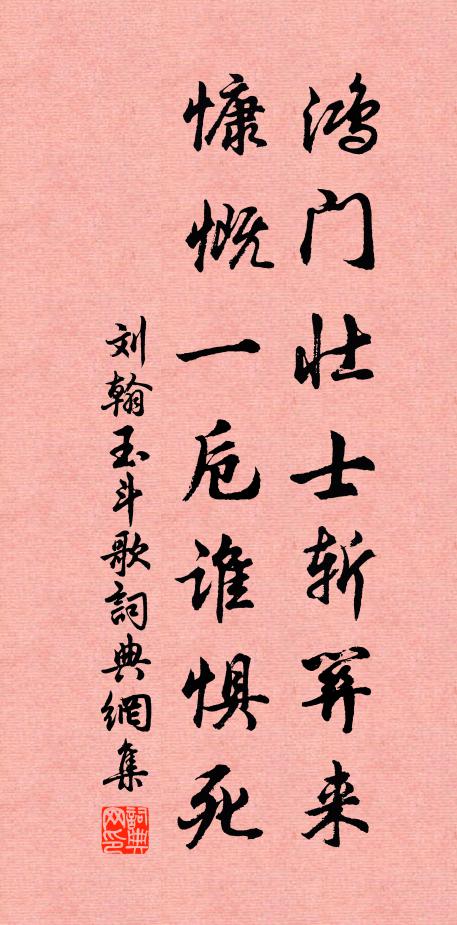 鸿门壮士斩关来
慷慨一卮谁惧死
刘翰玉斗歌詞典網集
詞典
网印